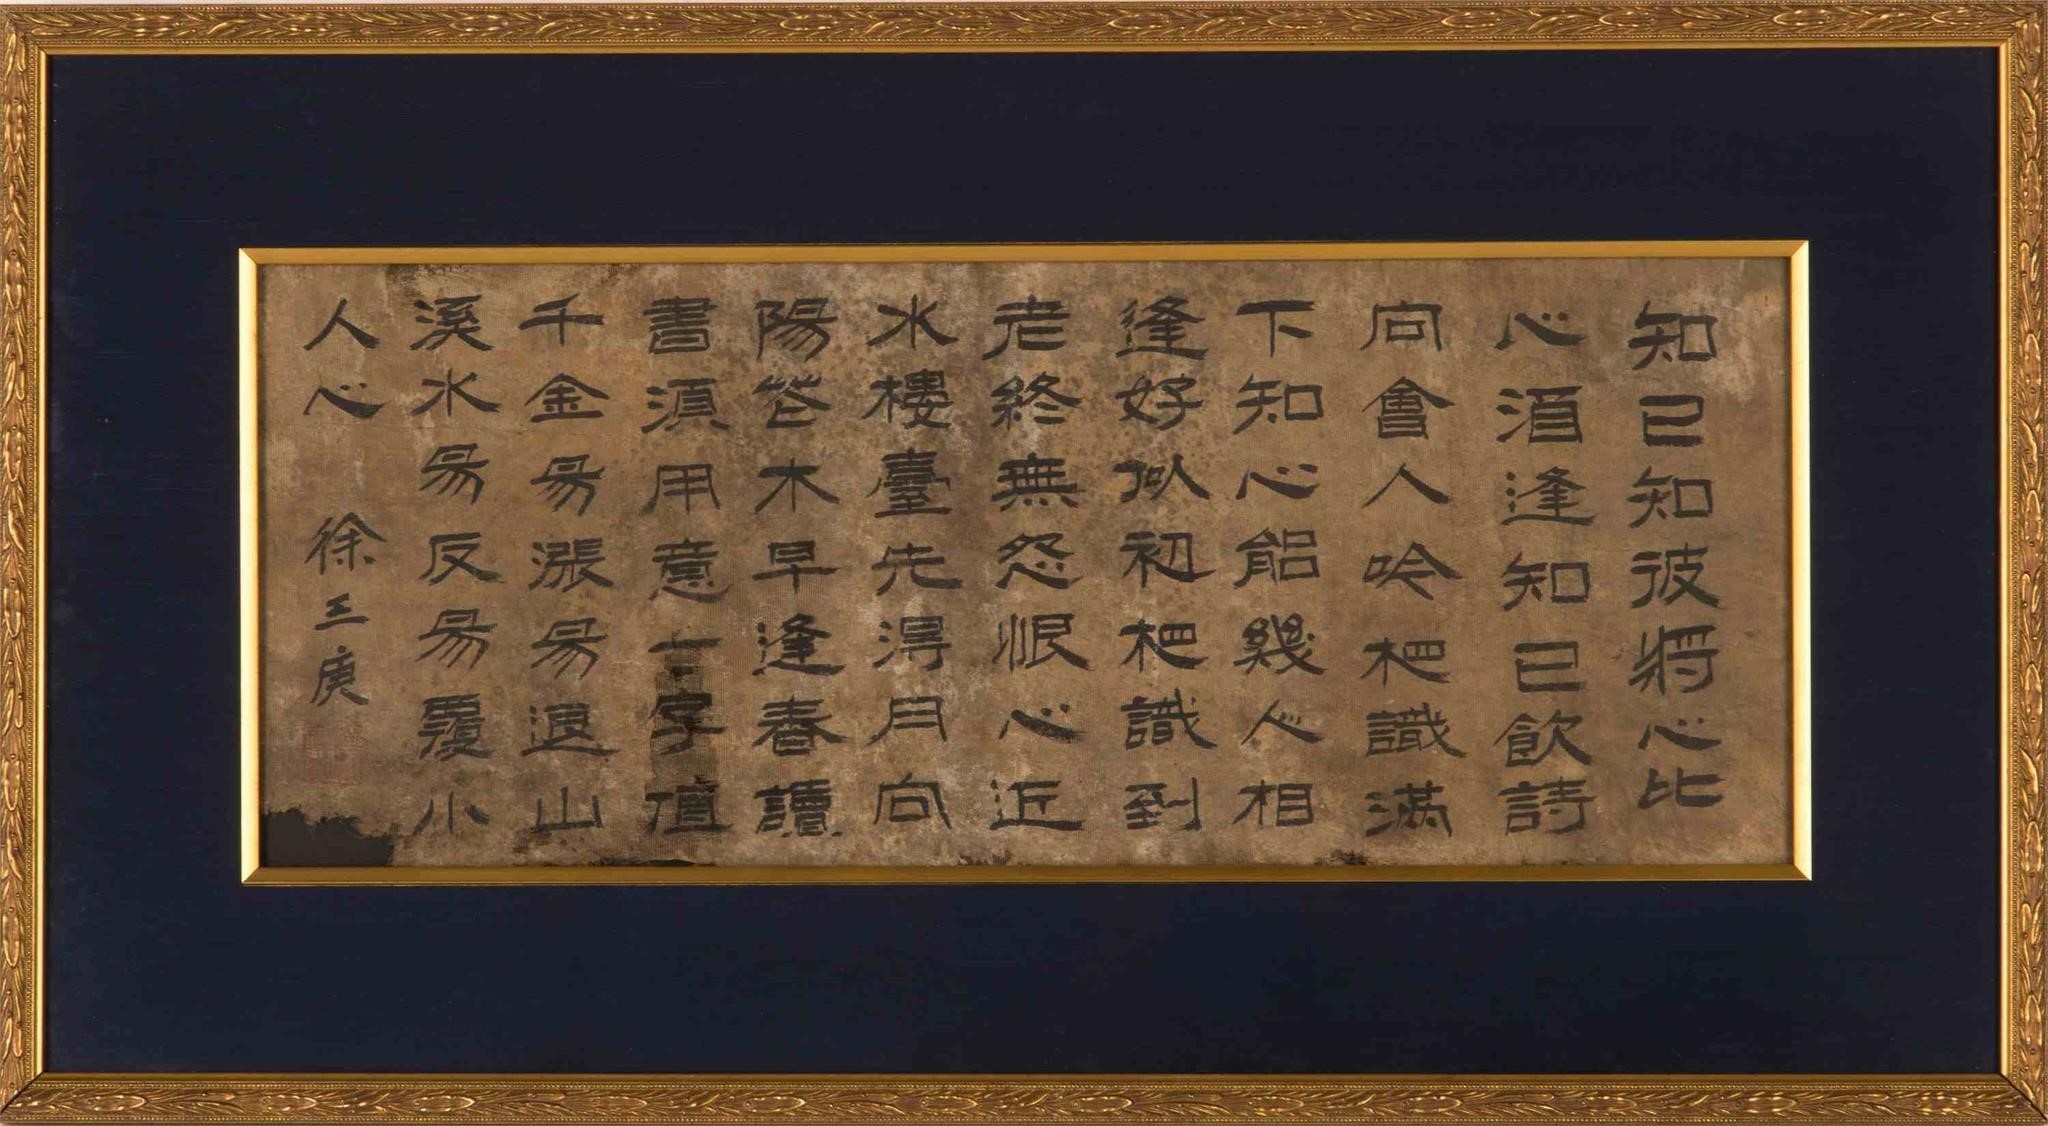 知己知彼將心比
心酒逢知己飲詩
向會人吟相識滿
下知心能幾人相
逢好似初相識到
老終無怨恨心近
水樓臺先得月向
陽花木早逢春讀
書須用意一字值
千金易漲易退山
溪水易反易覆小
人心 徐三庚